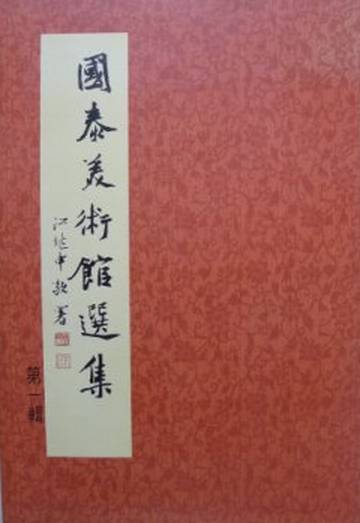 國泰美術館選集
江兆申敬署
第一輯